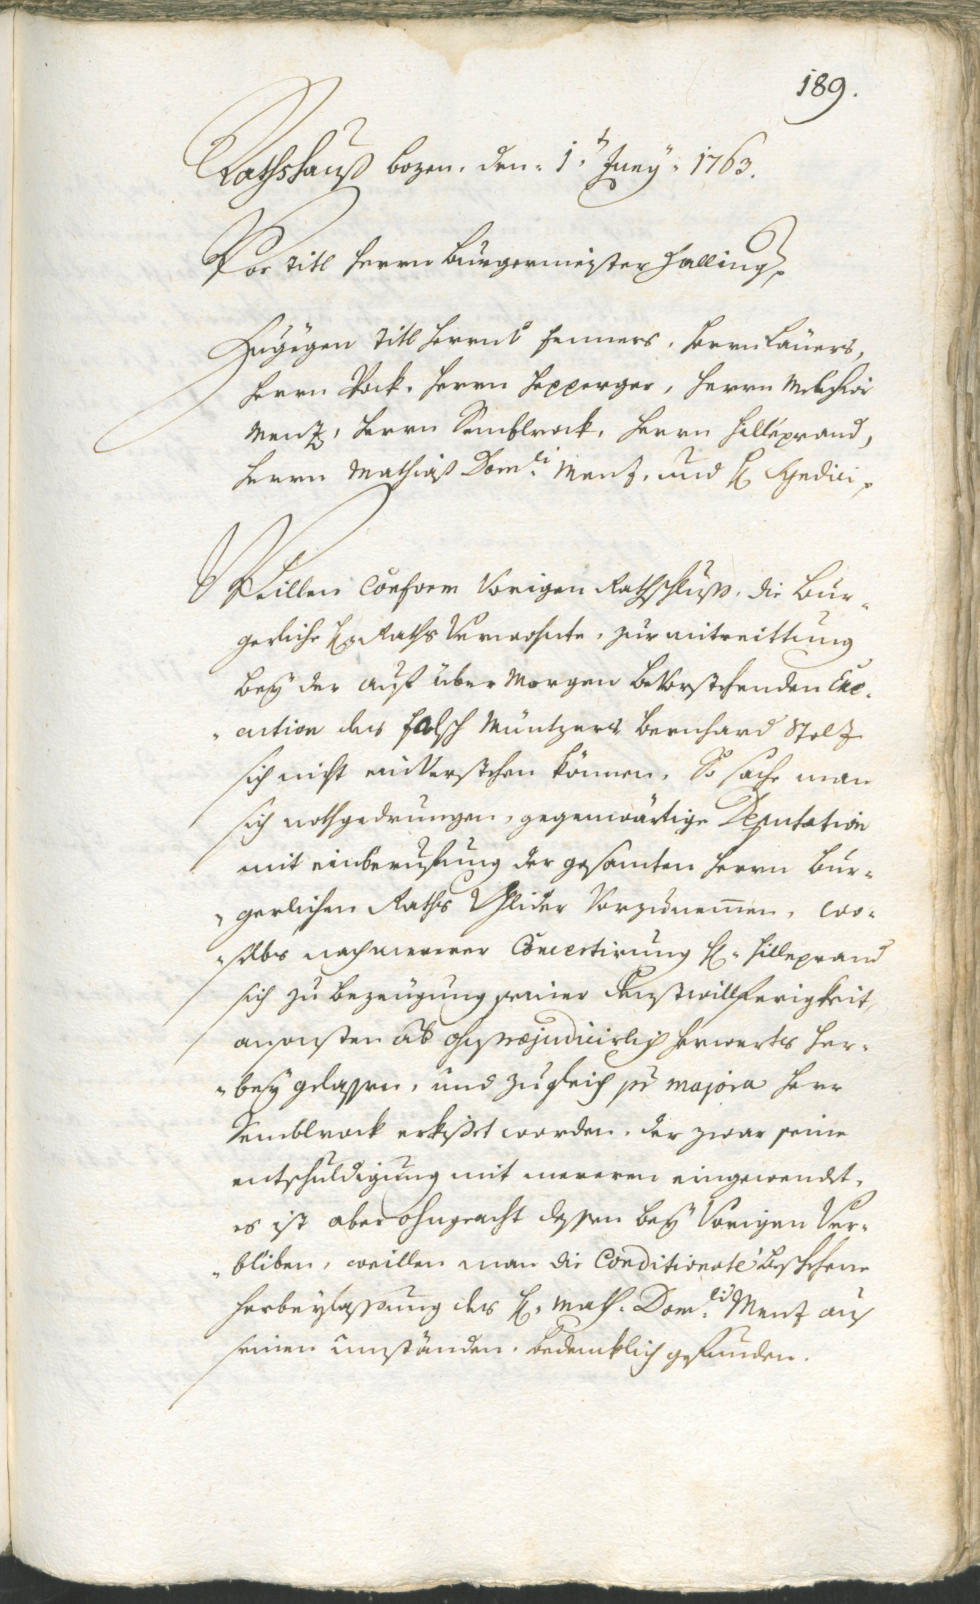 189.
Rathshauß Bozen. den. 1.t Juny. 1763.
Vor titl Herrn Burgermeister Halling.
Zugegen titl Herrn v Fenners, Herrn Lauers,
Herrn Pock. Herrn Hepperger, Herrn Melchior
Menz, Herrn Semblrock, Herrn Hilleprand,
Herrn Mathiaß Domci: Menz, und H Syndici.
Weillen Conform Vorigen Rathschluß, die Bur-
gerliche H. Raths Verwohnte, zur mitreittung
bey der auf über Morgen bevorstehenden Exe-
cution des falsch Müntzers Bernhard Stolz
sich nicht einverstehen können, So sache man
sich nothgedrungen, gegenwärtige Deputation
mit einberuffung der gesamten Herrn Bur-
gerlichen Raths Glider Vorzunemen, wo-
selbs nach merer Concertirung H. Hilleprand
sich zu bezeugung seiner dienstwillferigkeit,
ansonsten als ohnpræjudicirlich herwerts her-
bey gelassen, und zugleich per majora Herr
Semblrock erkißet worden, der zwar seine
entschuldigung mit mereren eingewendet,
es ist aber ohngeacht dessen bey Vorigen Ver-
bliben, weillen man die Conditionate beschehene
herbeylassung des H. Math. Domci: Menz aus
seinen Umständen, bedencklich gefunden.